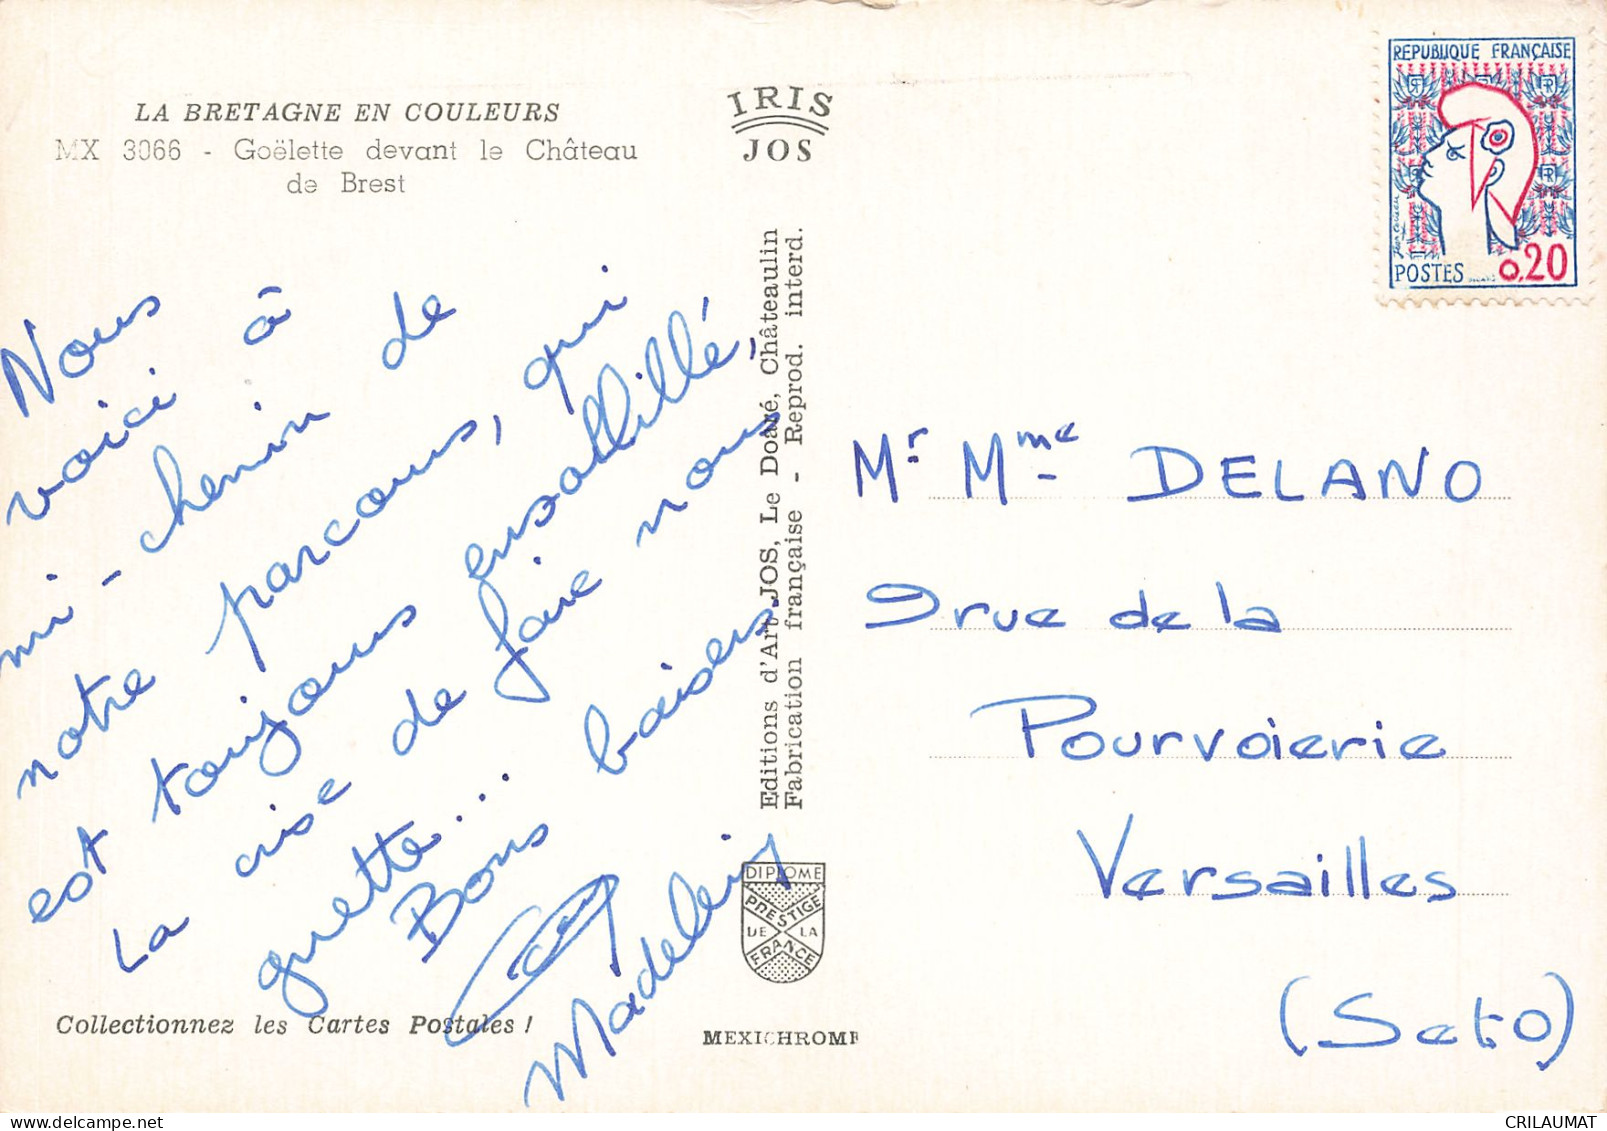 LA BRETAGNE EN COULEURS
MX 3066 - Goëlette devant le Château
de Brest
IRIS
JOS
REPUBLIQUE FRANÇAISE
POSTES 0,20
Nous
voici à
mi-chemin de
notre parcours, qui
est toujours ensoleillé,
La crise de foie nous
guette...
Bons baisers.
Madeleine
Editions d'Art JOS, Le Doaré, Châteaulin
Fabrication française - Reprod. interd.
Mr Mme DELANO
9 rue de la
Pourvoierie
Versailles
(Seto)
DIPLOME
PRESTIGE
DE LA
FRANCE
Collectionnez les Cartes Postales !
MEXICHROME
CRILAUMAT